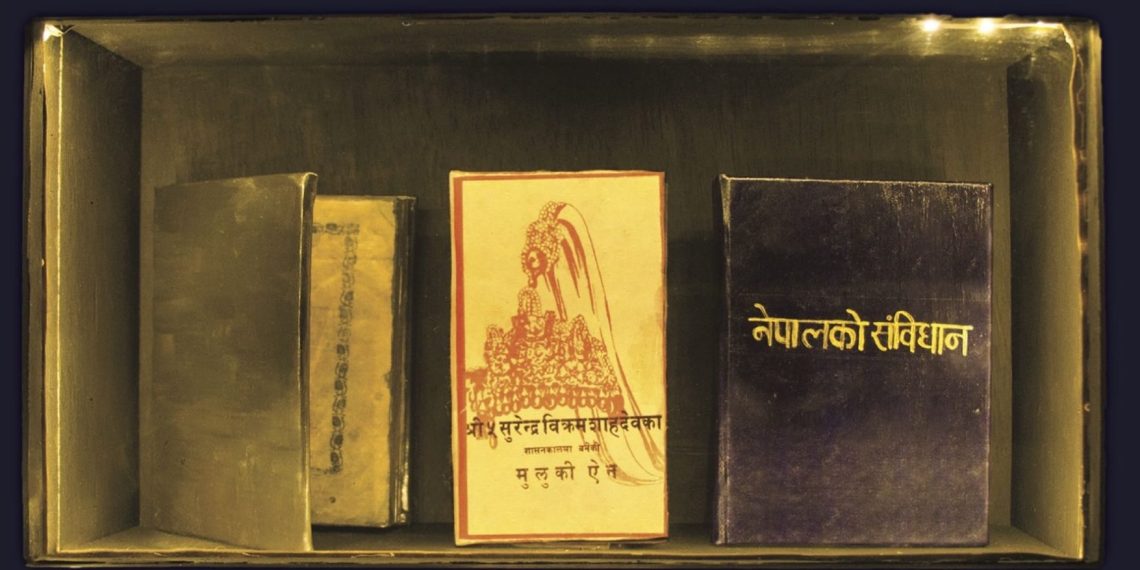 श्री ५ सुरेन्द्रविक्रमशाहदेवका
शासनकालमा बनेको
मुलुकी ऐन
नेपालको संविधान